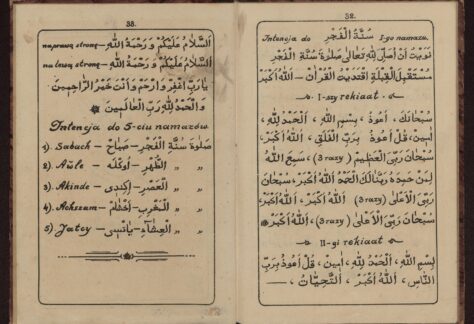 32.
Intencja do سُنَّةُ الْفَجْرِ I-go namazu.
نَوَيْتُ اَنْ اُصَلِّىَ لِلّٰهِ تَعَالٰى صَلٰوةَ سُنَّةِ الْفَجْرِ
مُسْتَقْبِلَ الْقِبْلَةِ اِقْتَدَيْتُ الْقُرْاٰنَ – اَللّٰهُ اَكْبَرُ
I-szy rekiaat
سُبْحَانَكَ، اَعُوذُ، بِسْمِ اللّٰهِ، اَلْحَمْدُ لِلّٰهِ،
اٰمِينَ، قُلْ اَعُوذُ بِرَبِّ الْفَلَقِ، اَللّٰهُ اَكْبَرُ،
سُبْحَانَ رَبِّىَ الْعَظِيمِ (3 razy) سَمِعَ اللّٰهُ
لِمَنْ حَمِدَهُ رَبَّنَا لَكَ الْحَمْدُ اَللّٰهُ اَكْبَرُ، سُبْحَانَ
رَبِّىَ الْاَعْلٰى (3 razy)، اَللّٰهُ اَكْبَرُ،
سُبْحَانَ رَبِّىَ الْاَعْلٰى (3 razy)، اَللّٰهُ اَكْبَرُ،
II-gi rekiaat
بِسْمِ اللّٰهِ، اَلْحَمْدُ لِلّٰهِ، اٰمِينَ، قُلْ اَعُوذُ بِرَبِّ
النَّاسِ، اَللّٰهُ اَكْبَرُ، اَلتَّحِيَّاتُ،
33.
na prawą stronę – اَلسَّلَامُ عَلَيْكُمْ وَرَحْمَةُ اللّٰهِ
na lewą stronę – اَلسَّلَامُ عَلَيْكُمْ وَرَحْمَةُ اللّٰهِ
يَارَبِّ اغْفِرْ وَارْحَمْ وَاَنْتَ خَيْرُ الرَّاحِمِينَ
وَالْحَمْدُ لِلّٰهِ رَبِّ الْعَالَمِينَ
Intencja do 5-ciu namazów
1). Sabach – صَلٰوةَ سُنَّةِ الْفَجْرِ – صَبَاحْ
2). Aüle – الظُّهْرِ – اُوكْلَه „ „
3). Akinde – الْعَصْرِ – اِكِنْدِى „ „
4). Achszam – الْمَغْرِبِ – اَخْشَامْ „ „
5). Jatcy – الْعِشَاءِ – يَاتْسِى „ „